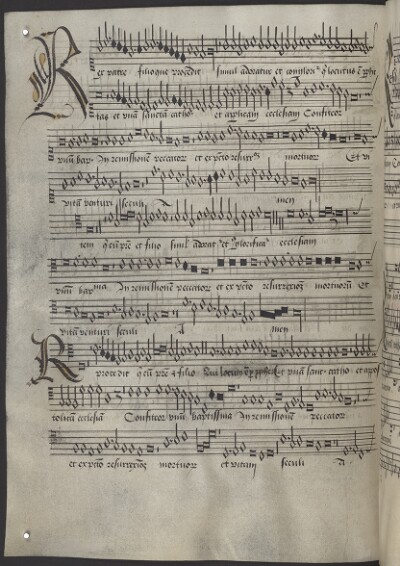 ex patre filioque procedit simul adoratur et conglor
tas et unā sanctā catho et apostolicam ecclesiam Confiteor
unū bap In remissionem peccator et expecto resurr mortuor Et vi
vitā venturi seculi A men
rem q cū pre et filio simul adorat et glorifica ecclesiam
unū bap ma In remissionem peccator et expecto resurrexionē mortuorū Et
vitā venturi seculi A men
procedit q cū prē et filio Qui locut est p prophet Et unā sanct catho et apos
tolicam ecclesiā Confiteor unū baptisma In remissionem peccator
et expecto resurrexionē mortuor et vitam seculi A